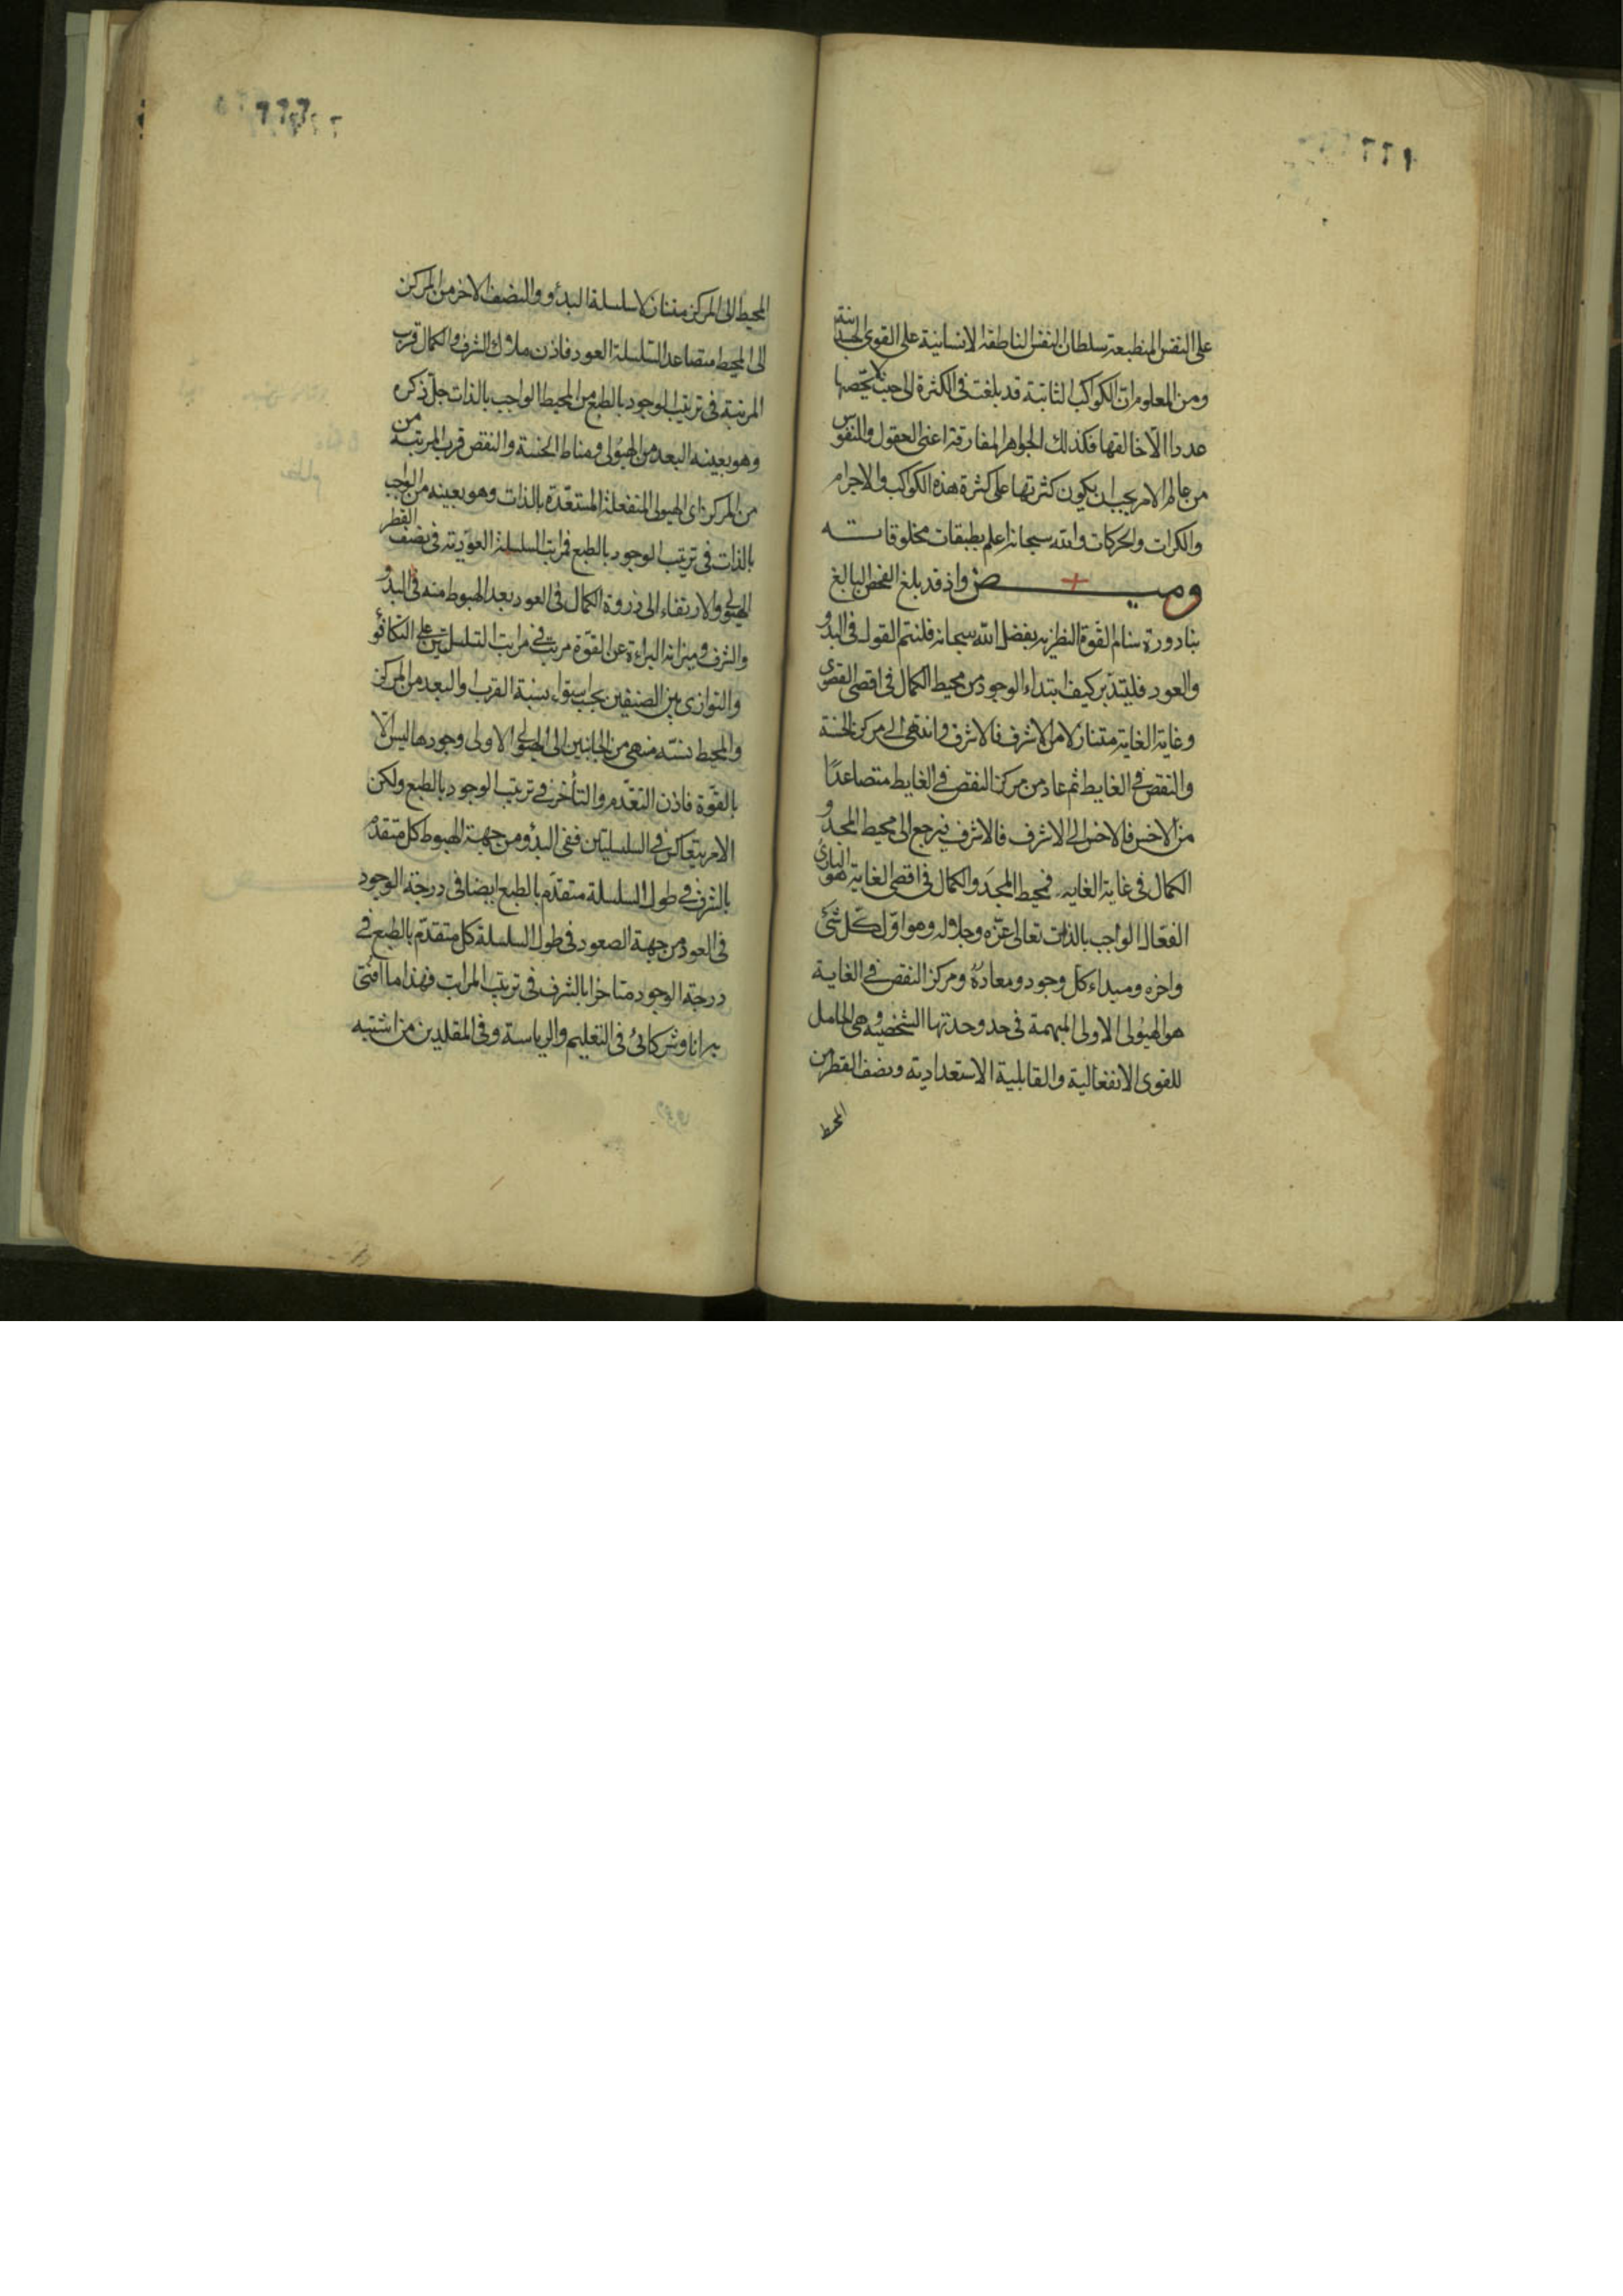 ٢٢١
على النفس المنطبعة سلطان النفس الناطقة الانسانية على القوى الجسدانية
ومن المعلوم ان الكواكب الثابتة قد بلغت فى الكثرة الى حيث لا يحصيها
عددا الّا خالقها فكذلك الجواهر المفارقة اعنى العقول والنفوس
من عالم الامر يجب ان يكون كثرتها على كثرة هذه الكواكب والاجرام
والكرات والحركات والله سبحانه اعلم بطبقات مخلوقاته
وميض واذ قد بلغ الفحص البالغ
بنا ذروة سنام القوة النظرية بفضل الله سبحانه فلنتم القول فى البدو
والعود فليتدبر كيف ابتداء الوجود من محيط الكمال فى اقصى القصوى
وغاية الغاية متنازلا من الاشرف فالاشرف وانتهى الى مركز الخسة
والنقص فى الغايط ثم عاد من مركز النقص فى الغايط متصاعدًا
من الاخس فالاخس الى الاشرف فالاشرف فيرجع الى محيط المجد و
الكمال فى غاية الغايه فمحيط المجد والكمال فى اقصى الغاية هو البارئ
الفعّال الواجب بالذات تعالى عزّه وجلاله وهو اوّل كلّ شئ
واخره ومبداء كل وجود ومعاده ومركز النقص فى الغاية
هو الهيولى الاولى المبهمة فى حد وحدتها الشخصية وهى الحامل
للقوى الانفعالية والقابلية الاستعدادية ونصف القطر من
المحيط
المحيط الى المركز متنازلا سلسلة البدؤ والنصف الاخر من المركز
الى المحيط متصاعدا السلسلة العود فاذن ملاك الشرف والكمال قرب
المرتبة فى ترتيب الوجود بالطبع من المحيط الواجب بالذات جلّ ذكره
وهو بعينه البعد من الهيولى ومناط الخسة والنقص قرب المرتبة من
من المركز اى الهيولى المنفعلة المستعدّة بالذات وهو بعينه من الواجب
بالذات فى ترتيب الوجود بالطبع فمراتب السلسلة العودية فى نصف القطر
الهيولى والارتقاء الى ذروة الكمال فى العود بعد الهبوط منه فى البدو
والشرف وميزانه البراءة عن القوة مرتب فى مراتب السلسلتين على التكافؤ
والتوازى بين الصنفين بحسب استواء نسبة القرب والبعد من المركز
والمحيط منتهى من الجانبين الى الهيولى الاولى وجودها ليس الّا
بالقوّة فاذن التقدّم والتأخر فى ترتيب الوجود بالطبع ولكن
الامر يتعاكس فى السلسلتين ففى البدؤ ومن جهة الهبوط كل متقدّم
بالشرف فى طول السلسلة متقدّم بالطبع ايضا فى درجة الوجود
فى العود من جهة الصعود فى طول السلسلة كل متقدّم بالطبع فى
درجة الوجود متاخرا بالشرف فى ترتيب المراتب فهذا ما افتى
به انا وشركائى فى التعليم والرياسة وفى المقلدين من اشتبه